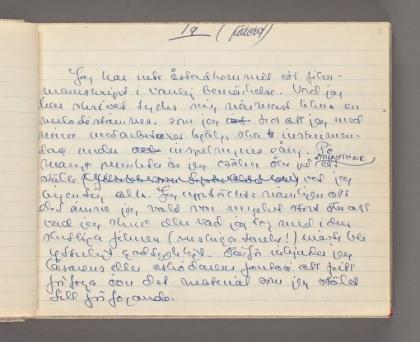 1a (förord)
Jag har inte åstadkommit ett film-
manuskript i vanlig bemärkelse. Vad jag
har skrivit tycks mig närmast likna en
melodistämma, som jag tror att jag med
mina medarbetares hjälp ska instrumen-
tera under inspelningens gång. På
många punkter är jag osäker och på ett
ÅTMINSTONE
ställe vet jag
ingenting alls. Jag upptäckte nämligen att
det ämne jag valt var mycket stort och att
vad jag skrev eller vad jag tog med i den
slutliga filmen (ruskiga tanke!) måste bli
ytterligt godtyckligt. Därför inbjuder jag
läsarens eller åskådarens fantasi att fritt
förfoga över det material som jag ställt
till förfogande.